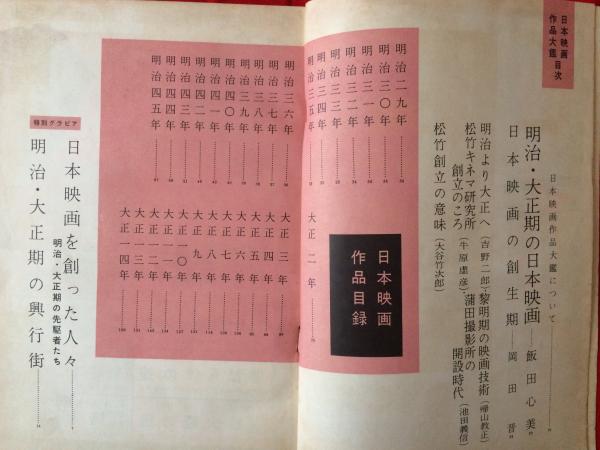 日本映画
作品大鑑 目次
日本映画作品大鑑について
明治・大正期の日本映画 飯田心美
日本映画の創生期 岡田晋
明治より大正へ(吉野二郎)・黎明期の映画技術(帰山教正)
松竹キネマ研究所創立のころ(牛原虚彦)・蒲田撮影所の開設時代(池田義信)
松竹創立の意味(大谷竹次郎)
日本映画
作品目録
明治二九年
明治三〇年
明治三一年
明治三二年
明治三三年
明治三四年
明治三五年
明治三六年
明治三七年
明治三八年
明治三九年
明治四〇年
明治四一年
明治四二年
明治四三年
明治四四年
明治四五年
大正二年
大正三年
大正四年
大正五年
大正六年
大正七年
大正八年
大正九年
大正一〇年
大正一一年
大正一二年
大正一三年
大正一四年
特別グラビア
日本映画を創った人々
明治・大正期の先駆者たち
明治・大正期の興行街